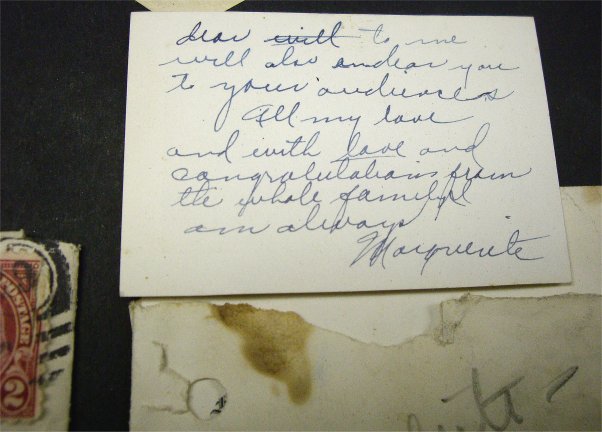 dear will to me
will also endear you
to your audiences
All my love
and with love and
congratulations from
the whole family I
am always
Marguerite
POSTAGE
2